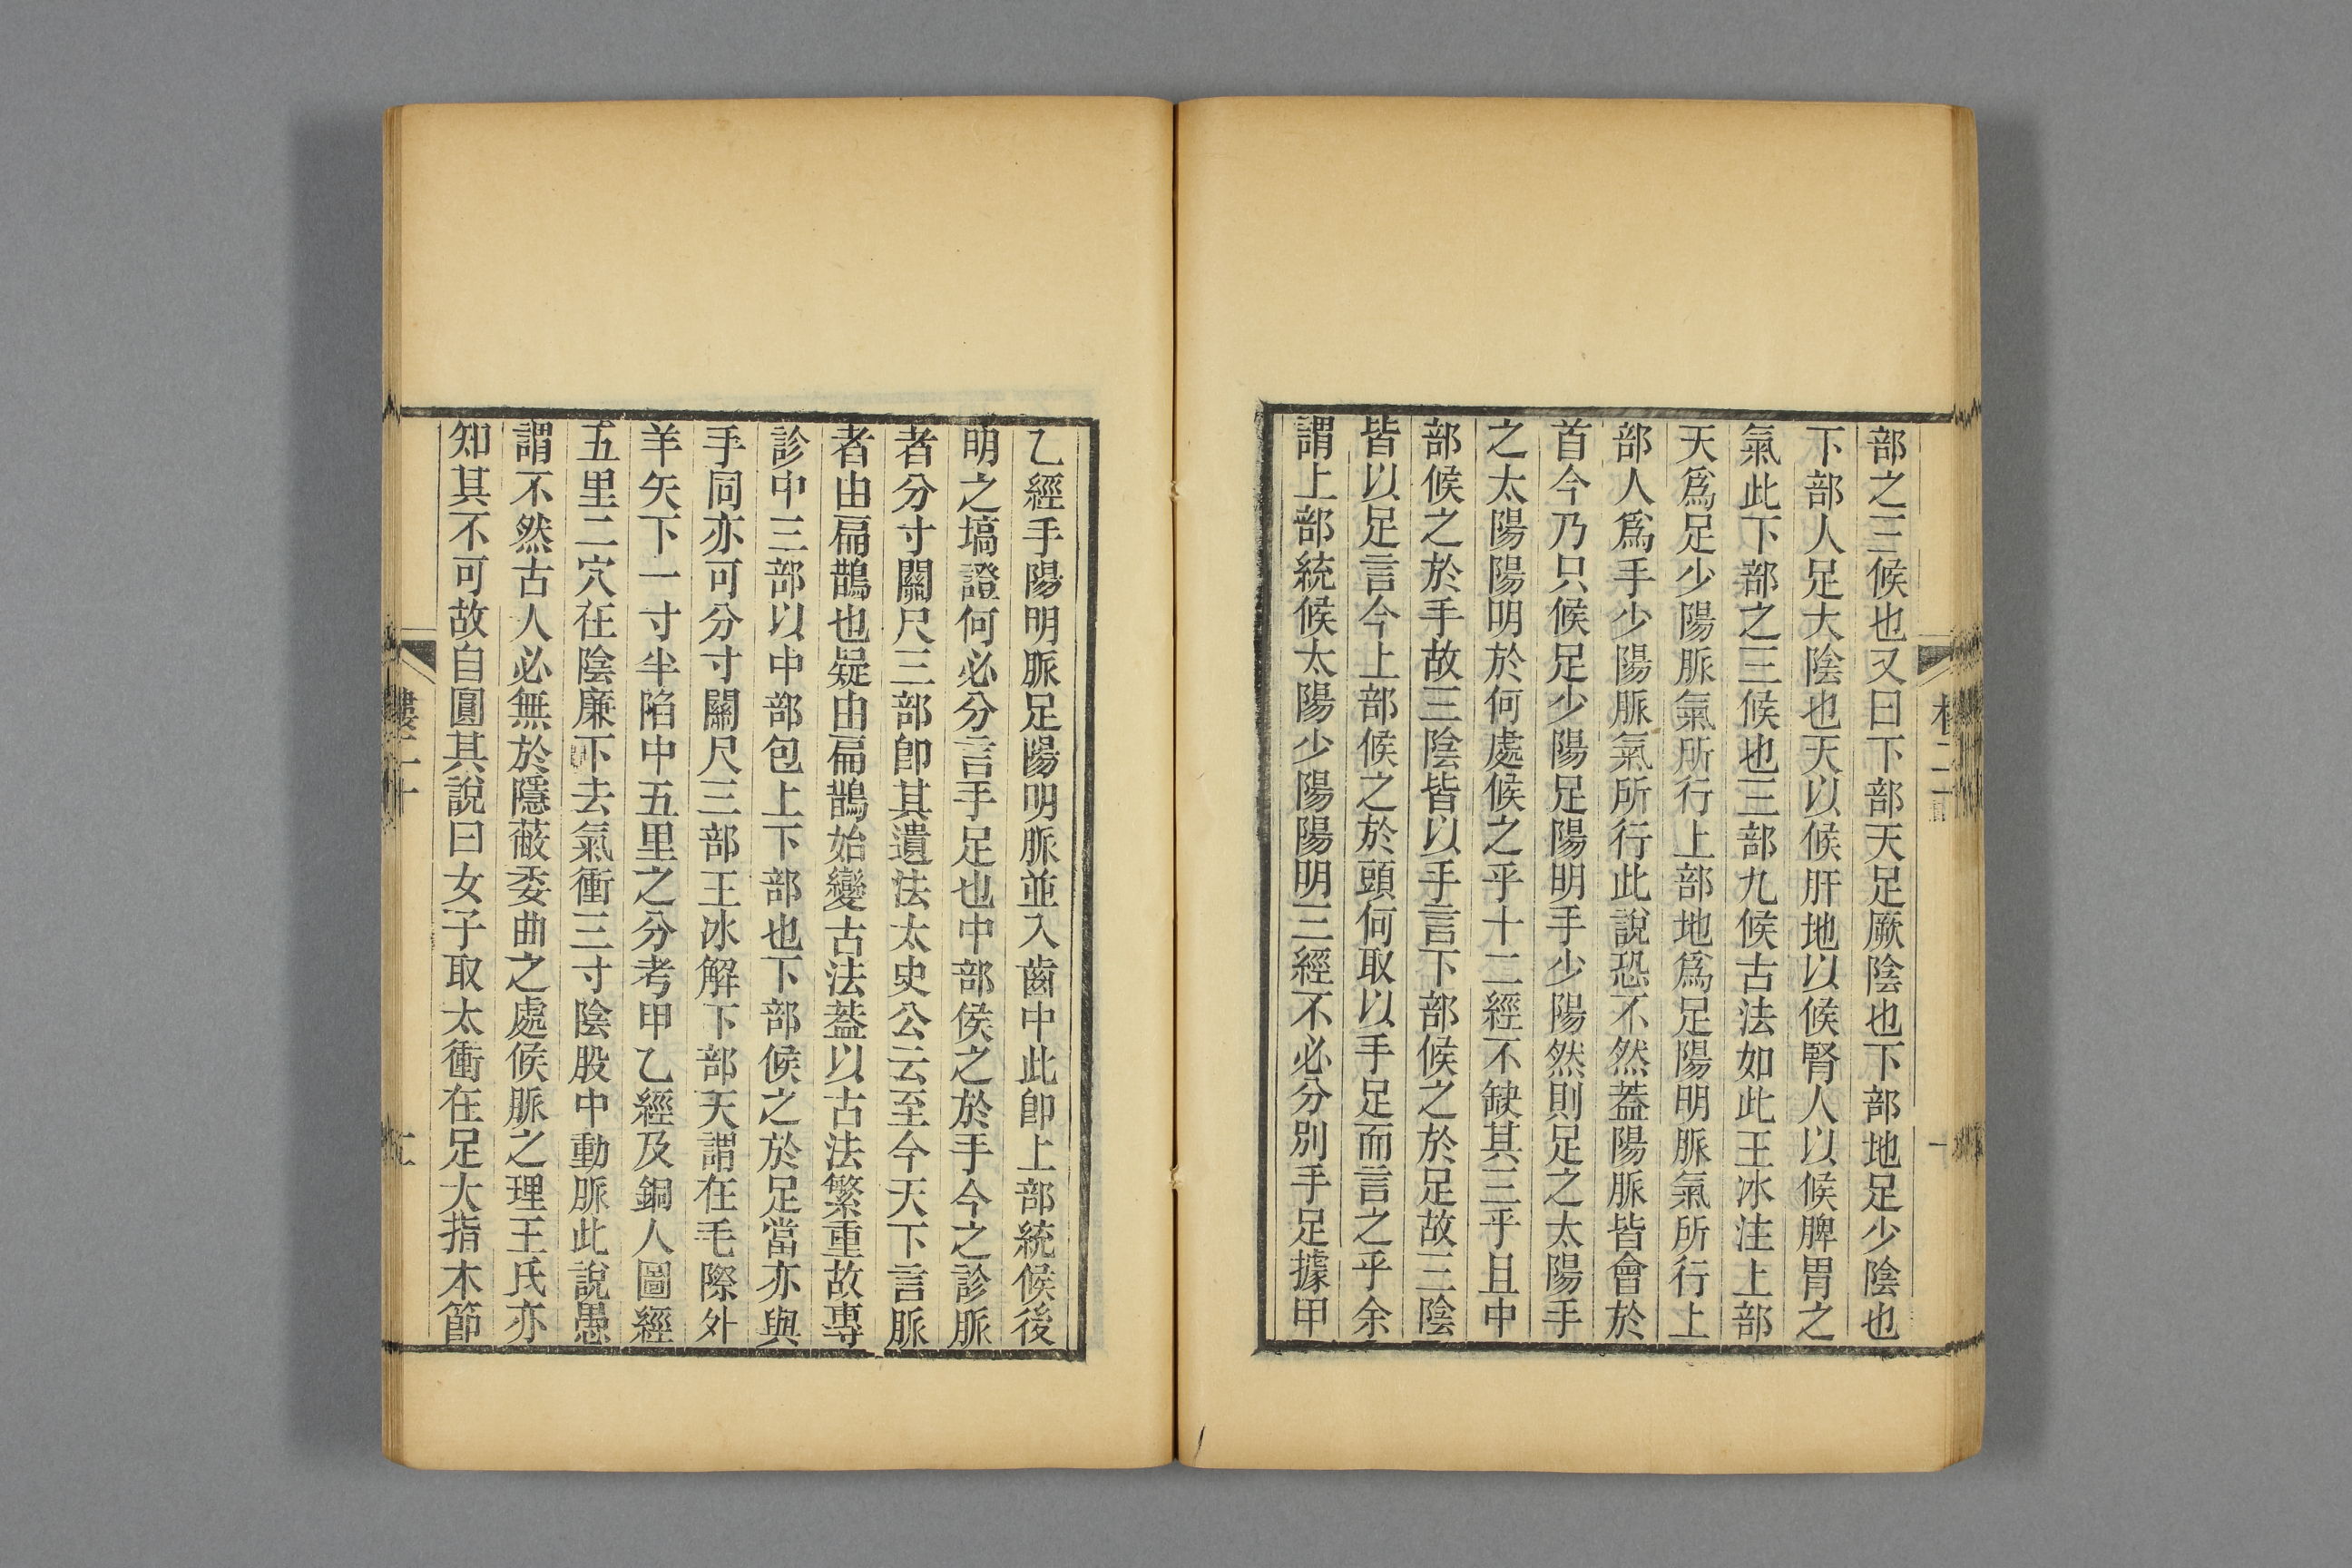 部之三候也又曰下部天足厥陰也下部地足少陰也
下部人足大陰也天以候肝地以候腎人以候脾胃之
氣此下部之三候也三部九候古法如此王冰注上部
天爲足少陽脈氣所行上部地爲足陽明脈氣所行上
部人爲手少陽脈氣所行此說恐不然葢陽脈皆會於
首今乃只候足少陽足陽明手少陽然則足之太陽手
之太陽陽明於何處候之乎十二經不缺其三乎且中
部候之於手故三陰皆以手言下部候之於足故三陰
皆以足言今上部候之於頭何取以手足而言之乎余
謂上部統候太陽少陽陽明三經不必分別手足據甲
乙經手陽明脈足陽明脈並入齒中此卽上部統候後
明之塙證何必分言手足也中部侯之於手今之診脈
者分寸關尺三部卽其遺法太史公云至今天下言脈
者由扁鵲也疑由扁鵲始變古法葢以古法繁重故專
診中三部以中部包上下部也下部候之於足當亦與
手同亦可分寸關尺三部王冰解下部天謂在毛際外
羊矢下一寸半陷中五里之分考甲乙經及銅人圖經
五里二穴在陰廉下去氣衝三寸陰股中動脈此說愚
謂不然古人必無於隱蔽委曲之處候脈之理王氏亦
知其不可故自圓其說曰女子取太衝在足大指本節